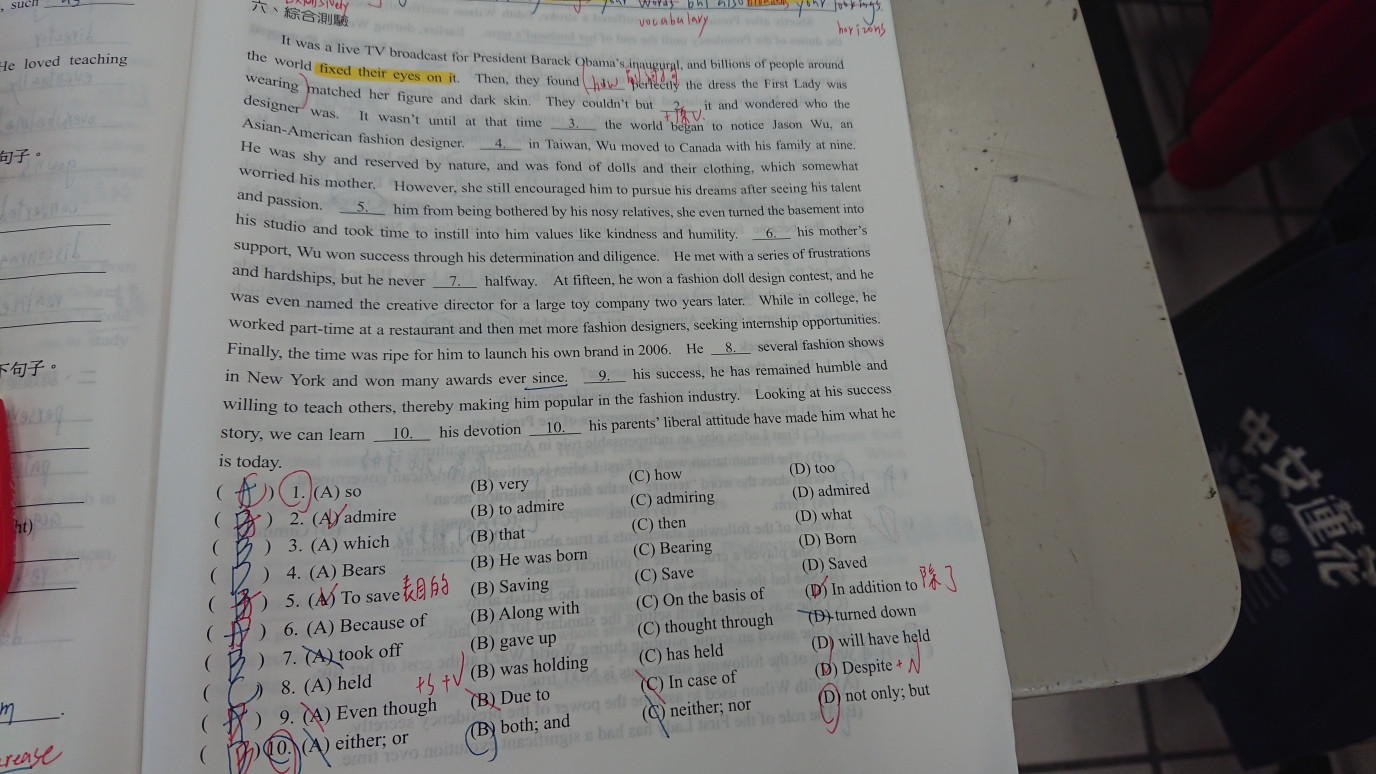 such
He loved teaching
句子。
下句子。
ht)
rease
words but also your
vocabulary
horizons
六、綜合測驗
It was a live TV broadcast for President Barack Obama's inaugural, and billions of people around
the world fixed their eyes on it. Then, they found how perfectly the dress the First Lady was
wearing matched her figure and dark skin. They couldn't but 2. it and wondered who the
+原V.
designer was. It wasn't until at that time 3. the world began to notice Jason Wu, an
Asian-American fashion designer. 4. in Taiwan, Wu moved to Canada with his family at nine.
He was shy and reserved by nature, and was fond of dolls and their clothing, which somewhat
worried his mother. However, she still encouraged him to pursue his dreams after seeing his talent
and passion. 5. him from being bothered by his nosy relatives, she even turned the basement into
his studio and took time to instill into him values like kindness and humility. 6. his mother's
support, Wu won success through his determination and diligence. He met with a series of frustrations
and hardships, but he never 7. halfway. At fifteen, he won a fashion doll design contest, and he
was even named the creative director for a large toy company two years later. While in college, he
worked part-time at a restaurant and then met more fashion designers, seeking internship opportunities.
Finally, the time was ripe for him to launch his own brand in 2006. He 8. several fashion shows
in New York and won many awards ever since. 9. his success, he has remained humble and
willing to teach others, thereby making him popular in the fashion industry. Looking at his success
story, we can learn 10. his devotion 10. his parents' liberal attitude have made him what he
is today.
( ) 1. (A) so (B) very (C) how (D) too
( ) 2. (A) admire (B) to admire (C) admiring (D) admired
( B ) 3. (A) which (B) that (C) then (D) what
( D ) 4. (A) Bears (B) He was born (C) Bearing (D) Born
( ) 5. (A) To save 表目的 (B) Saving (C) Save (D) Saved
( A ) 6. (A) Because of (B) Along with (C) On the basis of (D) In addition to 除了
( B ) 7. (A) took off (B) gave up (C) thought through (D) turned down
( C ) 8. (A) held (B) was holding (C) has held (D) will have held
( ) 9. (A) Even though +S+V (B) Due to (C) In case of (D) Despite +N
( ) 10. (A) either; or (B) both; and (C) neither; nor (D) not only; but
中女蓮花